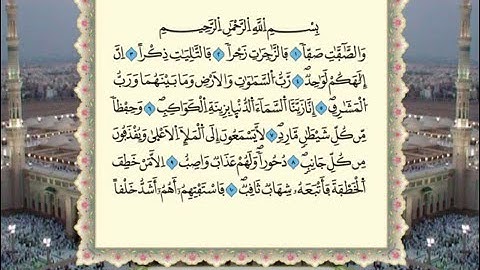 بِسْمِ اللَّهِ الرَّحْمَٰنِ الرَّحِيمِ
وَالصَّافَّاتِ صَفًّا ۝١ فَالزَّاجِرَاتِ زَجْرًا ۝٢ فَالتَّالِيَاتِ ذِكْرًا ۝٣ إِنَّ
إِلَٰهَكُمْ لَوَاحِدٌ ۝٤ رَبُّ السَّمَاوَاتِ وَالْأَرْضِ وَمَا بَيْنَهُمَا وَرَبُّ
الْمَشَارِقِ ۝٥ إِنَّا زَيَّنَّا السَّمَاءَ الدُّنْيَا بِزِينَةٍ الْكَوَاكِبِ ۝٦ وَحِفْظًا
مِّن كُلِّ شَيْطَانٍ مَّارِدٍ ۝٧ لَا يَسَّمَّعُونَ إِلَى الْمَلَإِ الْأَعْلَىٰ وَيُقْذَفُونَ
مِن كُلِّ جَانِبٍ ۝٨ دُحُورًا وَلَهُمْ عَذَابٌ وَاصِبٌ ۝٩ إِلَّا مَنْ خَطِفَ
الْخَطْفَةَ فَأَتْبَعَهُ شِهَابٌ ثَاقِبٌ ۝١٠ فَاسْتَفْتِهِمْ أَهُمْ أَشَدُّ خَلْقًا